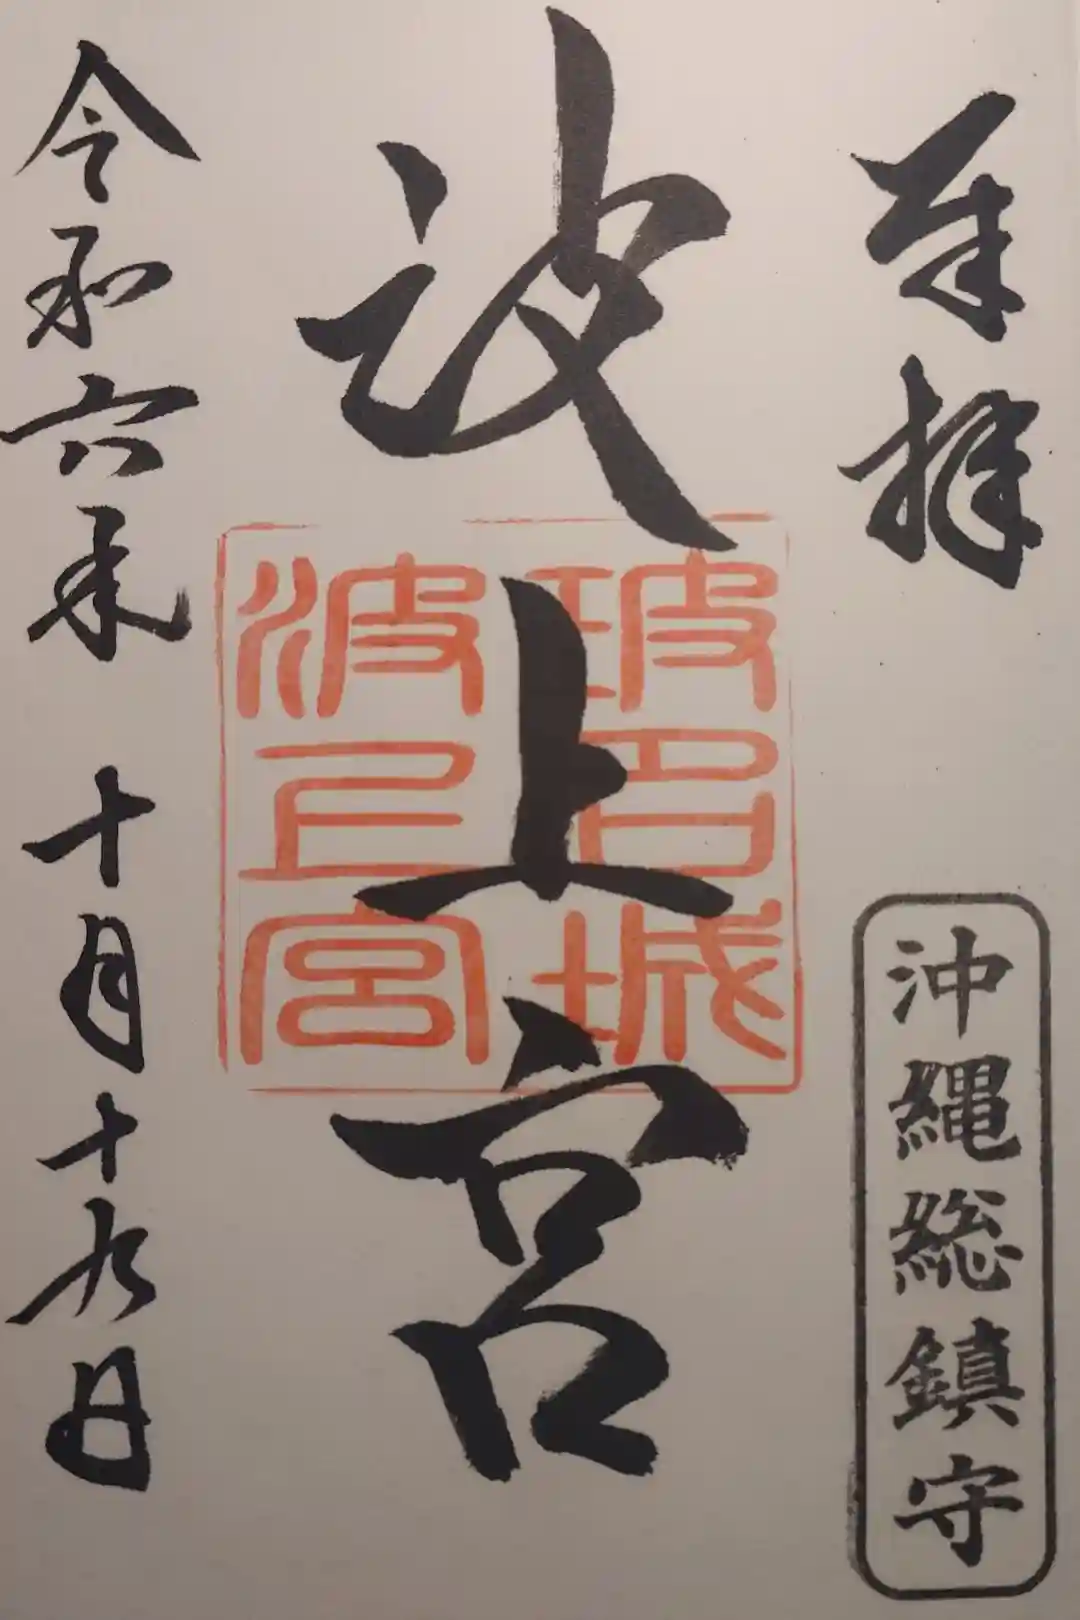 奉拝
沖縄総鎮守
波上宮
波上宮
令和六年 十月十九日